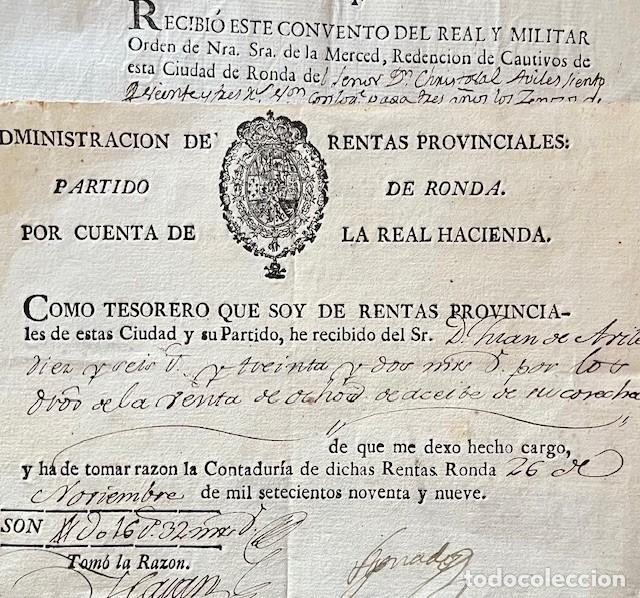 RECIBIÓ ESTE CONVENTO DEL REAL Y MILITAR
Orden de Nra. Sra. de la Merced, Redencion de Cautivos de
esta Ciudad de Ronda del Señor Dn. Christobal Aviles ciento
y veinte y tres rs. von. para tres años
DMINISTRACION DE RENTAS PROVINCIALES:
PARTIDO DE RONDA.
POR CUENTA DE LA REAL HACIENDA.
COMO TESORERO QUE SOY DE RENTAS PROVINCIA-
les de estas Ciudad y su Partido, he recibido del Sr. D. Juan de Avile
diez y seis y treinta y dos mrs. por los
dros de la renta de ocho de aceite de su cosecha
de que me dexo hecho cargo,
y ha de tomar razon la Contaduría de dichas Rentas. Ronda 26 de
Noviembre de mil setecientos noventa y nueve.
SON 16 32 mrs
Tomó la Razon.
todocoleccion.net